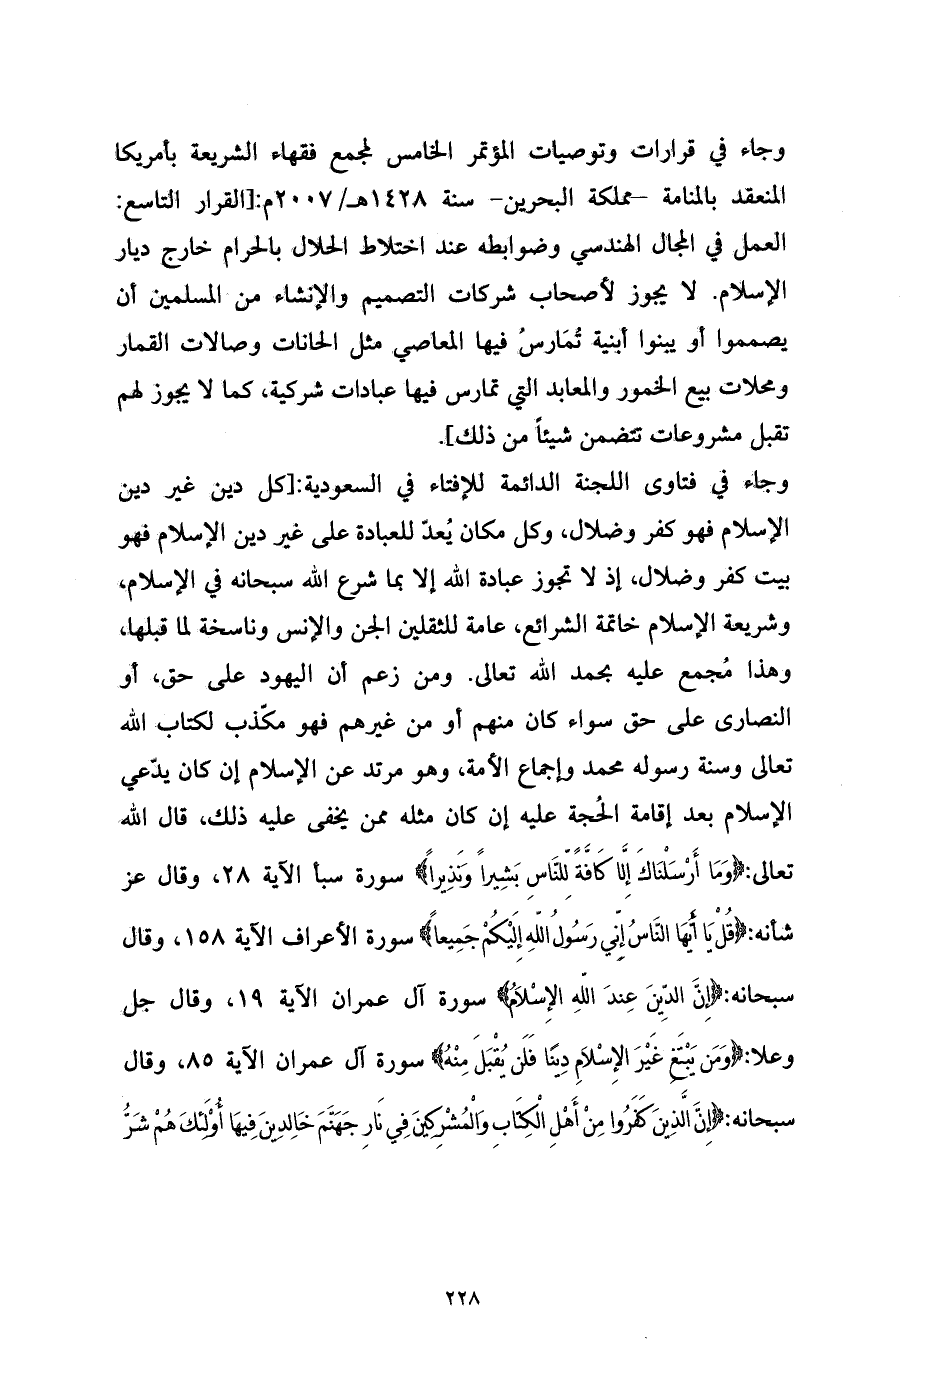 وجاء في قرارات وتوصيات المؤتمر الخامس لمجمع فقهاء الشريعة بأمريكا
المنعقد بالمنامة –مملكة البحرين– سنة ١٤٢٨هـ/٢٠٠٧م:[القرار التاسع:
العمل في المجال الهندسي وضوابطه عند اختلاط الحلال بالحرام خارج ديار
الإسلام. لا يجوز لأصحاب شركات التصميم والإنشاء من المسلمين أن
يصمموا أو يبنوا أبنية تُمَارسُ فيها المعاصي مثل الحانات وصالات القمار
ومحلات بيع الخمور والمعابد التي تمارس فيها عبادات شركية، كما لا يجوز لهم
تقبل مشروعات تتضمن شيئاً من ذلك].
وجاء في فتاوى اللجنة الدائمة للإفتاء في السعودية:[كل دين غير دين
الإسلام فهو كفر وضلال، وكل مكان يُعدّ للعبادة على غير دين الإسلام فهو
بيت كفر وضلال، إذ لا تجوز عبادة الله إلا بما شرع الله سبحانه في الإسلام،
وشريعة الإسلام خاتمة الشرائع، عامة للثقلين الجن والإنس وناسخة لما قبلها،
وهذا مُجمع عليه بحمد الله تعالى. ومن زعم أن اليهود على حق، أو
النصارى على حق سواء كان منهم أو من غيرهم فهو مكّذب لكتاب الله
تعالى وسنة رسوله محمد وإجماع الأمة، وهو مرتد عن الإسلام إن كان يدّعي
الإسلام بعد إقامة الحُجة عليه إن كان مثله ممن يخفى عليه ذلك، قال الله
تعالى:﴿وَمَا أَرْسَلْنَاكَ إِلَّا كَافَّةً لِّلنَّاسِ بَشِيراً وَنَذِيراً﴾ سورة سبأ الآية ٢٨، وقال عز
شأنه:﴿قُلْ يَا أَيُّهَا النَّاسُ إِنِّي رَسُولُ اللّهِ إِلَيْكُمْ جَمِيعاً﴾ سورة الأعراف الآية ١٥٨، وقال
سبحانه:﴿إِنَّ الدِّينَ عِندَ اللّهِ الإِسْلَامُ﴾ سورة آل عمران الآية ١٩، وقال جل
وعلا:﴿وَمَن يَبْتَغِ غَيْرَ الإِسْلَامِ دِينًا فَلَن يُقْبَلَ مِنْهُ﴾ سورة آل عمران الآية ٨٥، وقال
سبحانه:﴿إِنَّ الَّذِينَ كَفَرُوا مِنْ أَهْلِ الْكِتَابِ وَالْمُشْرِكِينَ فِي نَارِ جَهَنَّمَ خَالِدِينَ فِيهَا أُوْلَئِكَ هُمْ شَرُّ
٢٢٨